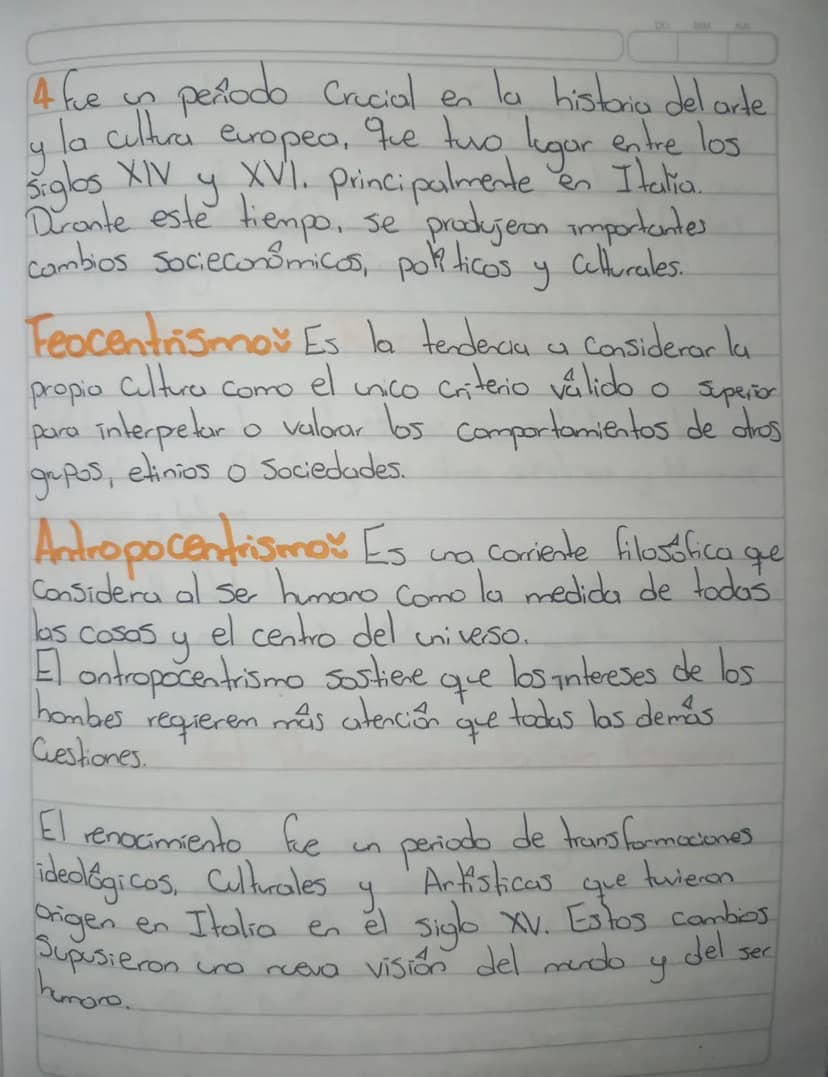 DD MM AA
4 fue un período Crucial en la historia del arte
y la cultura europea, que tuvo lugar entre los
siglos XIV y XVI. principalmente en Italia.
Durante este tiempo, se produjeron importantes
cambios socieconómicos, políticos y Culturales.
Teocentrismo: Es la tendencia a considerar la
propia Cultura como el unico criterio válido o superior
para interpretar o valorar los comportamientos de otros
grupos, etinios o Sociedades.
Antropocentrismo: Es una corriente filosófica que
Considera al ser humano Como la medida de todas
las cosas y el centro del universo.
El antropocentrismo sostiene que los intereses de los
hombes requieren más atención que todas las demás
Cuestiones.
El renacimiento fue un periodo de transformaciones
ideológicos, Culturales y Artísticas que tuvieron
origen en Italia en el siglo XV. Estos cambios
Supusieron una nueva visión del mundo y del ser
humano.